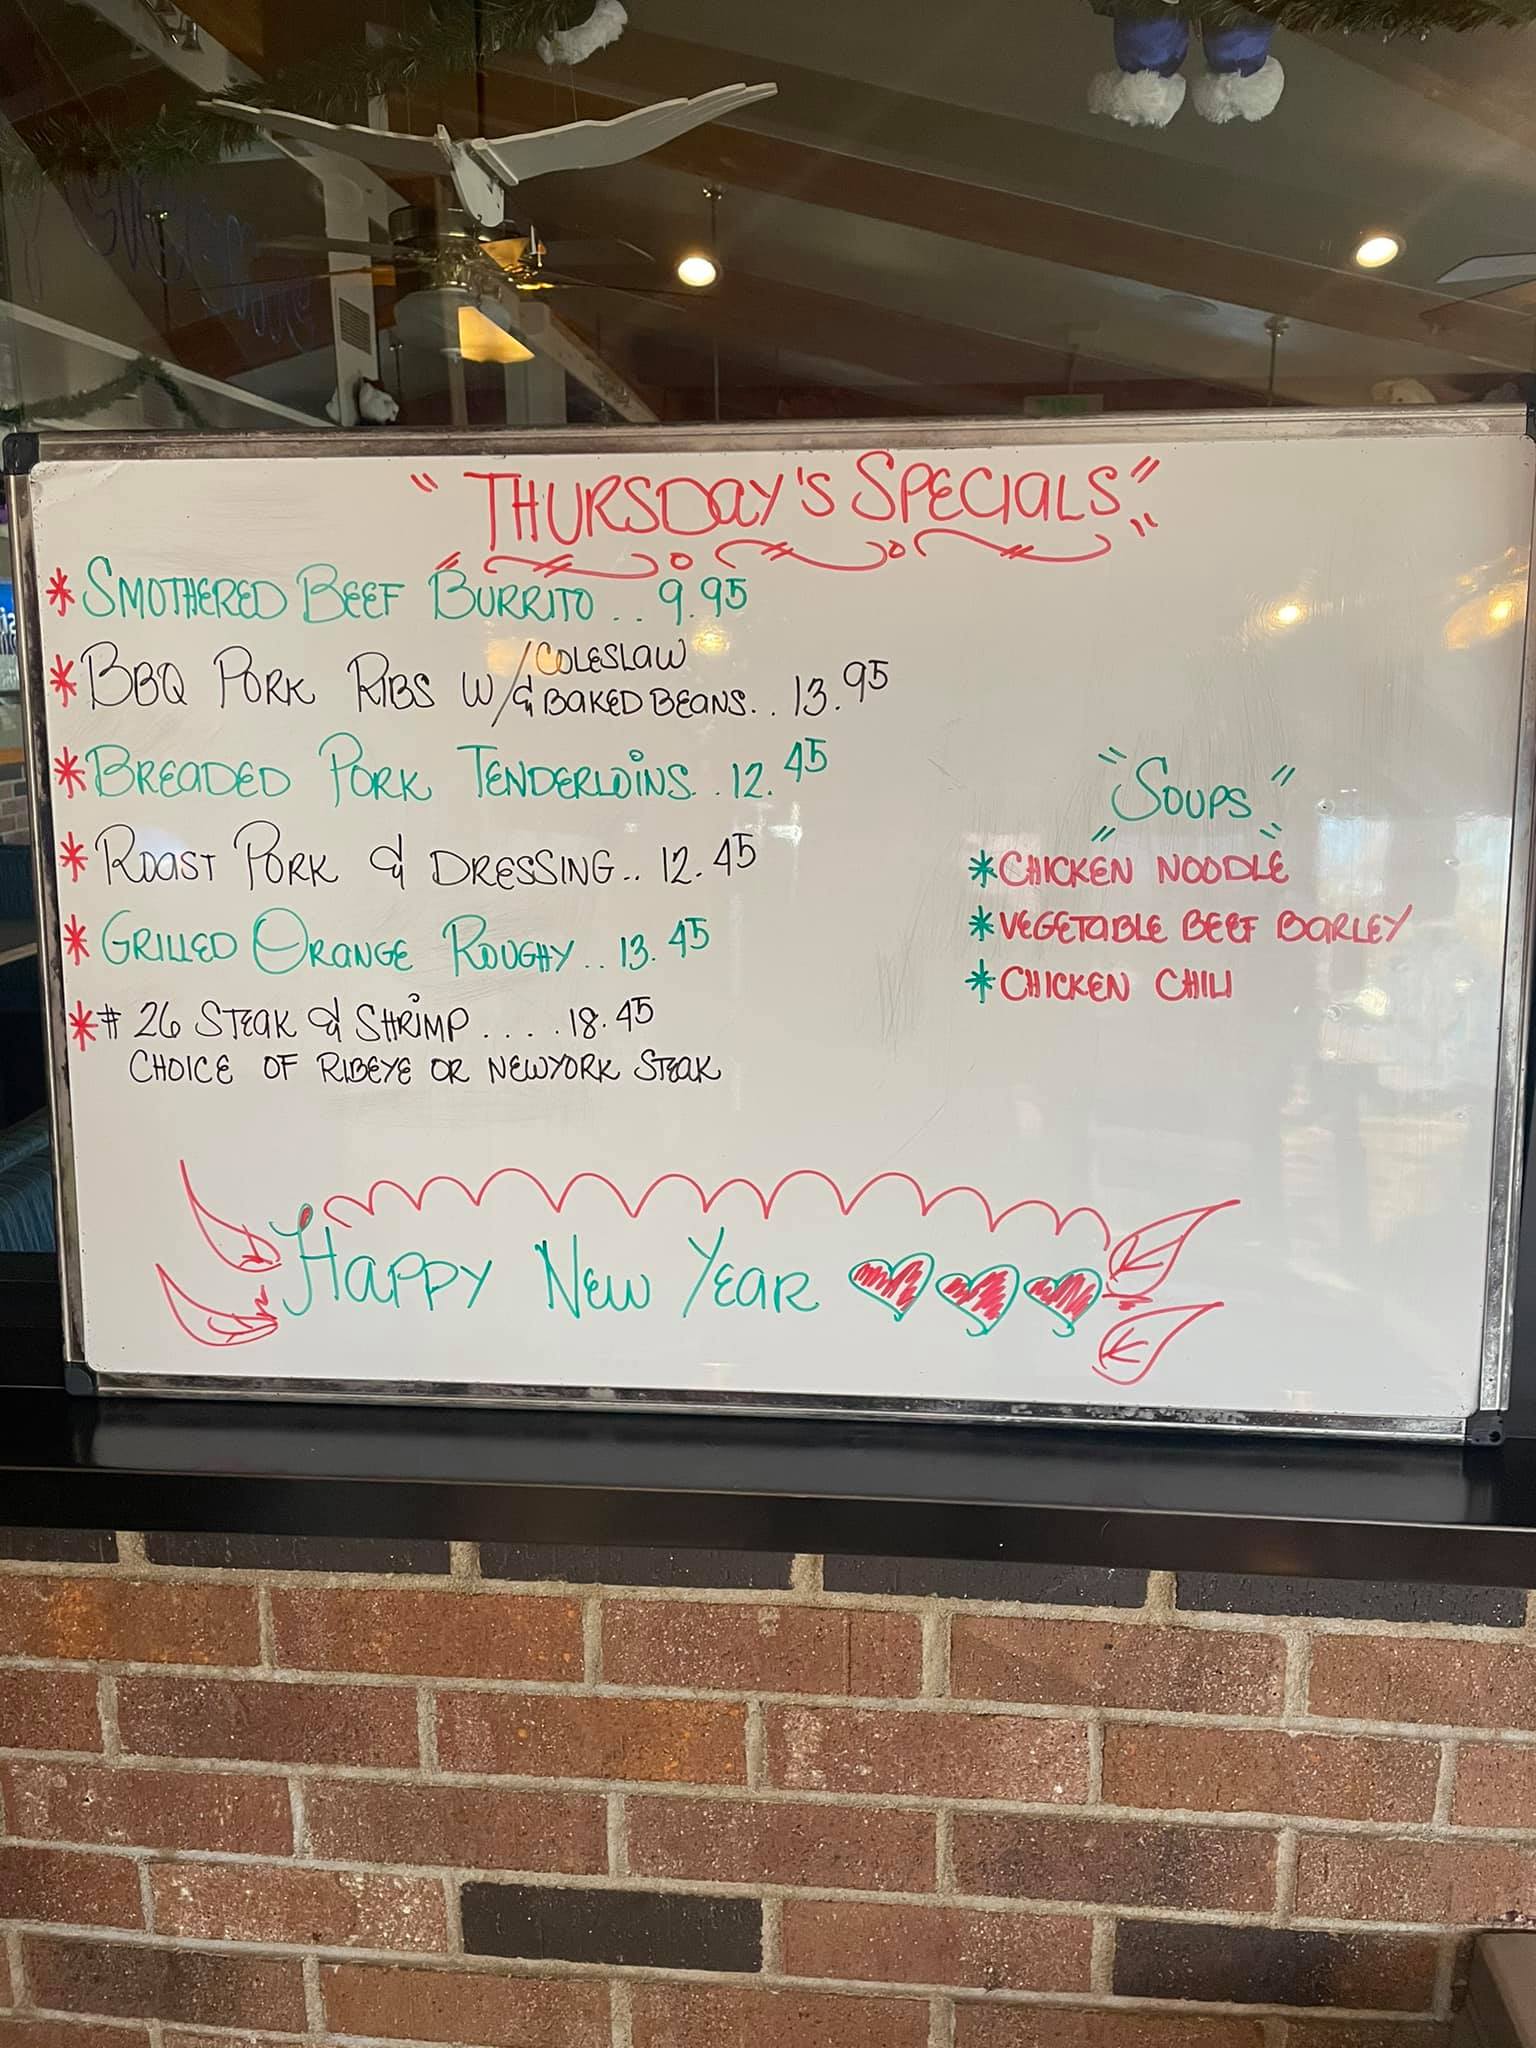 "THURSDAY'S SPECIALS"
*SMOTHERED BEEF BURRITO .. 9.95
*BBQ PORK RIBS W/ COLESLAW
& BAKED BEANS.. 13.95
*BREADED PORK TENDERLOINS.. 12.45
*ROAST PORK & DRESSING.. 12.45
*GRILLED ORANGE ROUGHY.. 13.45
*# 26 STEAK & SHRIMP .... 18.45
CHOICE OF RIBEYE OR NEWYORK STEAK
"SOUPS"
*CHICKEN NOODLE
*VEGETABLE BEEF BARLEY
*CHICKEN CHILI
HAPPY NEW YEAR